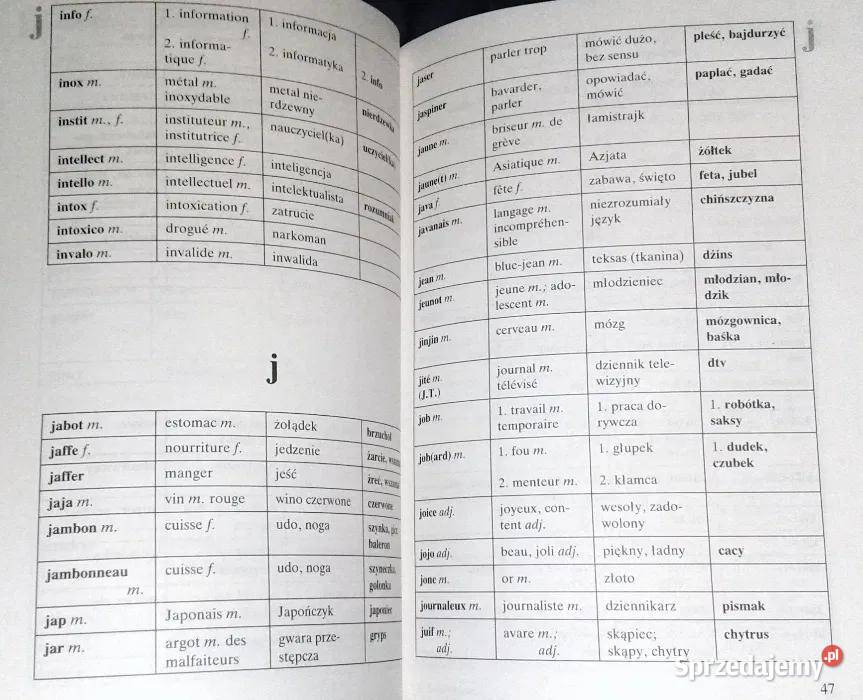 j
info f. 1. information f. 1. informacja
2. informatique f. 2. informatyka 2. info
inox m. métal m. inoxydable metal nierdzewny nierdzewka
instit m., f. instituteur m., institutrice f. nauczyciel(ka)
intellect m. intelligence f. inteligencja
intello m. intellectuel m. intelektualista
intox f. intoxication f. zatrucie
intoxico m. drogué m. narkoman
invalo m. invalide m. inwalida
j
jabot m. estomac m. żołądek brzuchol
jaffe f. nourriture f. jedzenie żarcie,
jaffer manger jeść żreć,
jaja m. vin m. rouge wino czerwone czerwone
jambon m. cuisse f. udo, noga szynka, baleron
jambonneau m. cuisse f. udo, noga szyneczka, golonka
jap m. Japonais m. Japończyk japoniec
jar m. argot m. des malfaiteurs gwara przestępcza gryps
j
jaser parler trop mówić dużo, bez sensu pleść, bajdurzyć
jaspiner bavarder, parler opowiadać, mówić paplać, gadać
jaune m. briseur m. de grève łamistrajk
jaune(t) m. Asiatique m. Azjata żółtek
java f. fête f. zabawa, święto feta, jubel
javanais m. langage m. incompréhensible niezrozumiały język chińszczyzna
jean m. blue-jean m. teksas (tkanina) dżins
jeunot m. jeune m.; adolescent m. młodzieniec młodzian, młodzik
jinjin m. cerveau m. mózg mózgownica, baśka
jité m. (J.T.) journal m. télévisé dziennik telewizyjny dtv
job m. 1. travail m. temporaire 1. praca dorywcza 1. robótka, saksy
job(ard) m. 1. fou m. 1. głupek 1. dudek, czubek
2. menteur m. 2. kłamca
joice adj. joyeux, content adj. wesoły, zadowolony
jojo adj. beau, joli adj. piękny, ładny cacy
jonc m. or m. złoto
journaleux m. journaliste m. dziennikarz pismak
juif m.; adj. avare m.; adj. skąpiec; skąpy, chytry chytrus
47
Sprzedajemy.pl